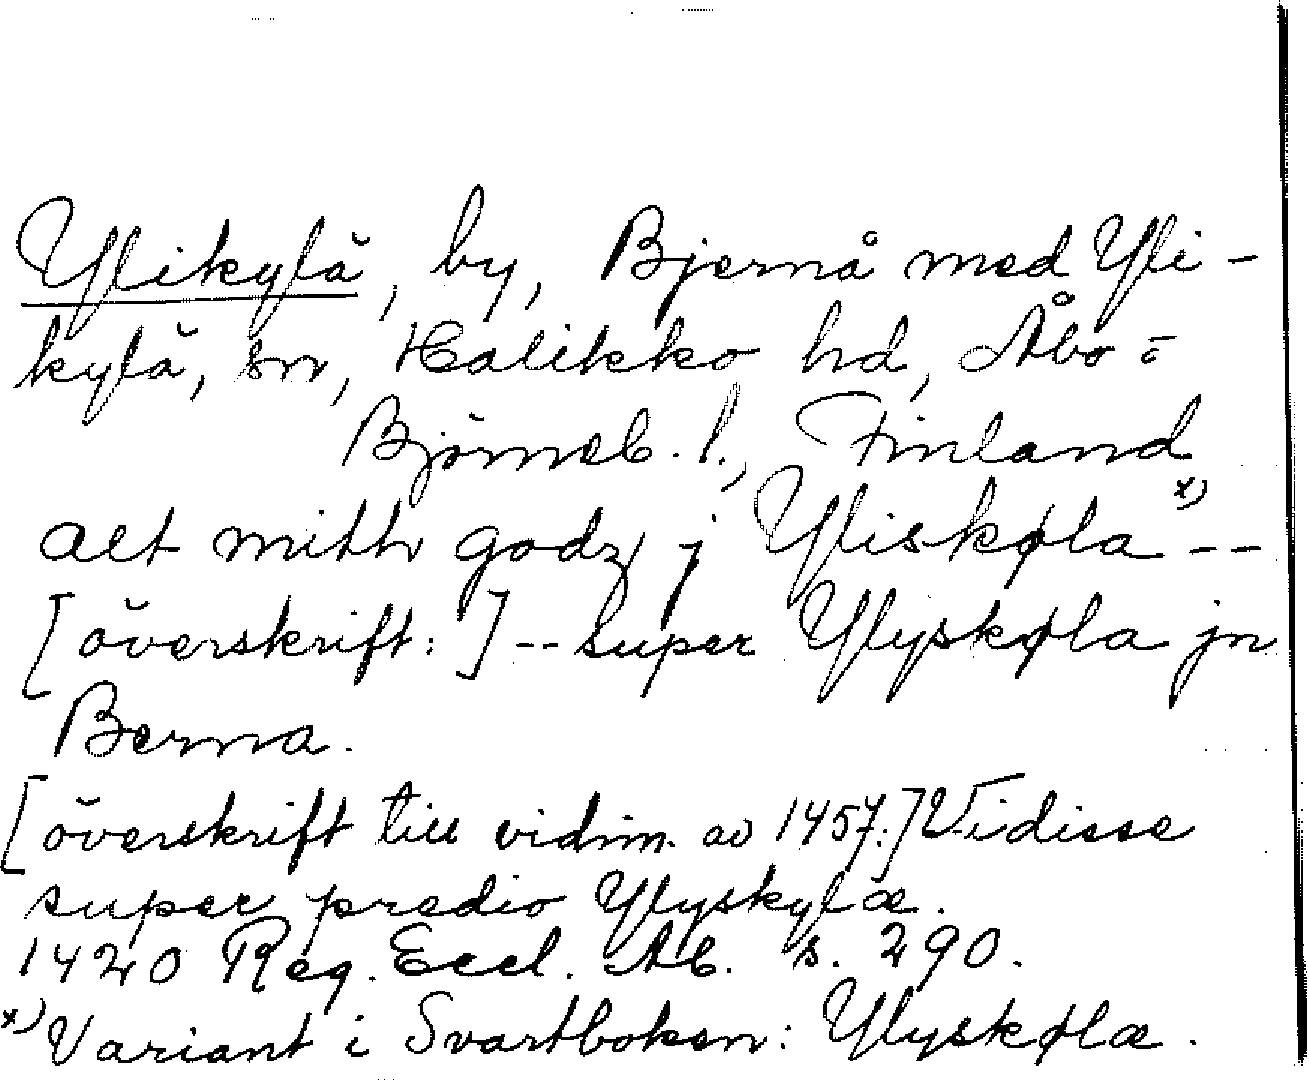 Ylikylä, by, Bjernå med Yli-
kylä, sn, Halikko hd, Åbo o
Björneb. l., Finland
alt mitth godz j Yliskøla x) --
[överskrift:] -- super Ylyskøla jn
Berna.
[överskrift till vidim. av 1457:] Vidisse
super predio Ylyskylæ.
1420 Reg. Eccl. Ab. s. 290.
x) Variant i Svartboken: Ylyskølæ.